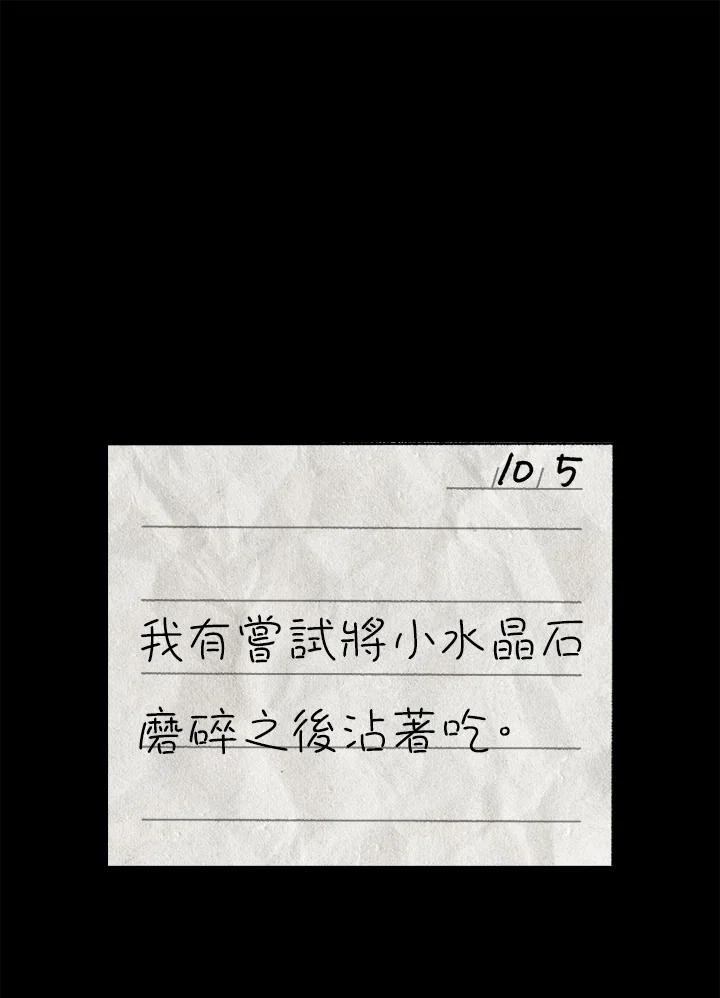 10/5
我有嘗試將小水晶石
磨碎之後沾著吃。